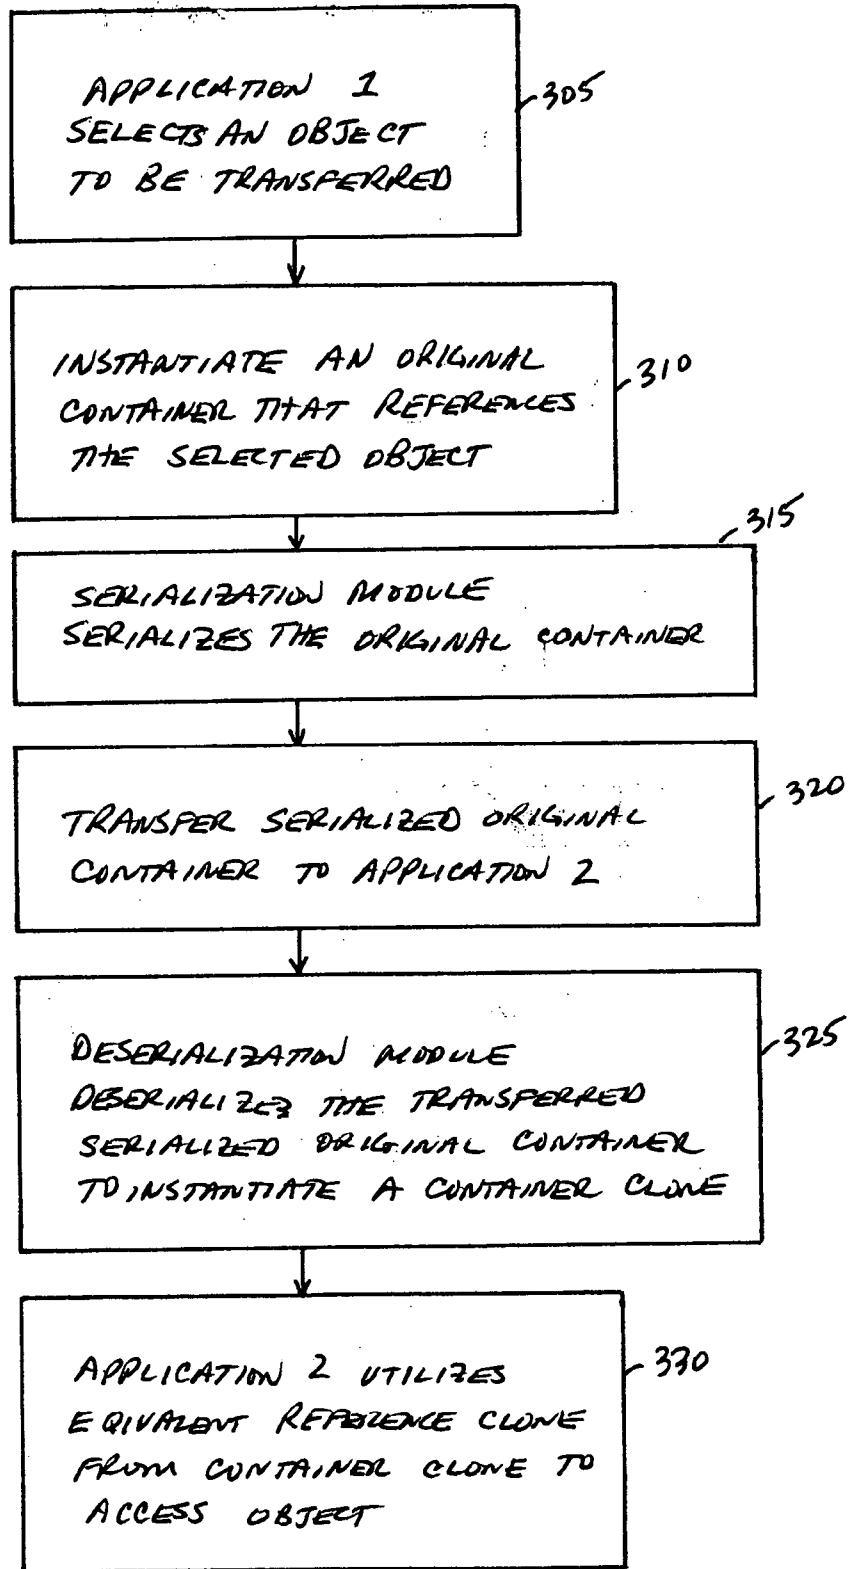 APPLICATION 1
SELECTS AN OBJECT
TO BE TRANSFERRED
305
INSTANTIATE AN ORIGINAL
CONTAINER THAT REFERENCES
THE SELECTED OBJECT
310
315
SERIALIZATION MODULE
SERIALIZES THE ORIGINAL CONTAINER
TRANSFER SERIALIZED ORIGINAL
CONTAINER TO APPLICATION 2
320
DESERIALIZATION MODULE
DESERIALIZES THE TRANSFERRED
SERIALIZED ORIGINAL CONTAINER
TO INSTANTIATE A CONTAINER CLONE
325
APPLICATION 2 UTILIZES
EQIVALENT REFERENCE CLONE
FROM CONTAINER CLONE TO
ACCESS OBJECT
330